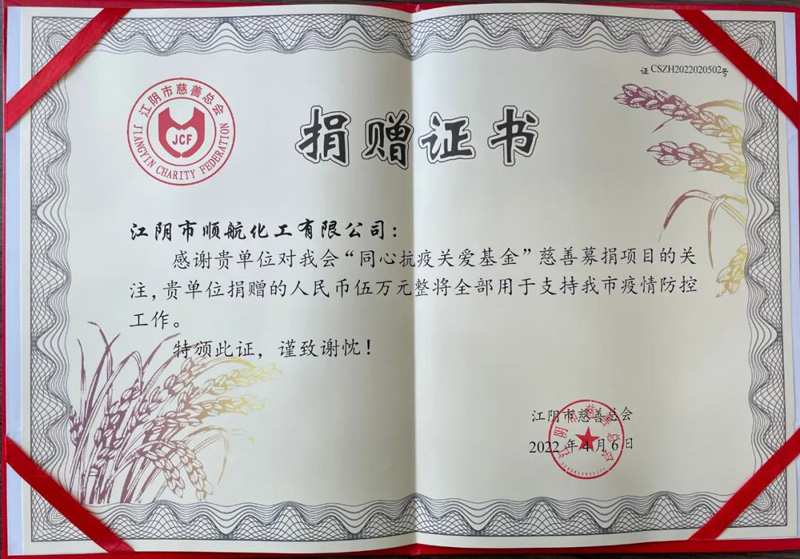 证CSZH2022020502号
江阴市慈善总会
JCF
JIANGYIN CHARITY FEDERATION
捐赠证书
江阴市顺航化工有限公司：
感谢贵单位对我会“同心抗疫关爱基金”慈善募捐项目的关
注，贵单位捐赠的人民币伍万元整将全部用于支持我市疫情防控
工作。
特颁此证，谨致谢忱！
江阴市慈善总会
2022 年 4 月 6 日
江阴市慈善总会